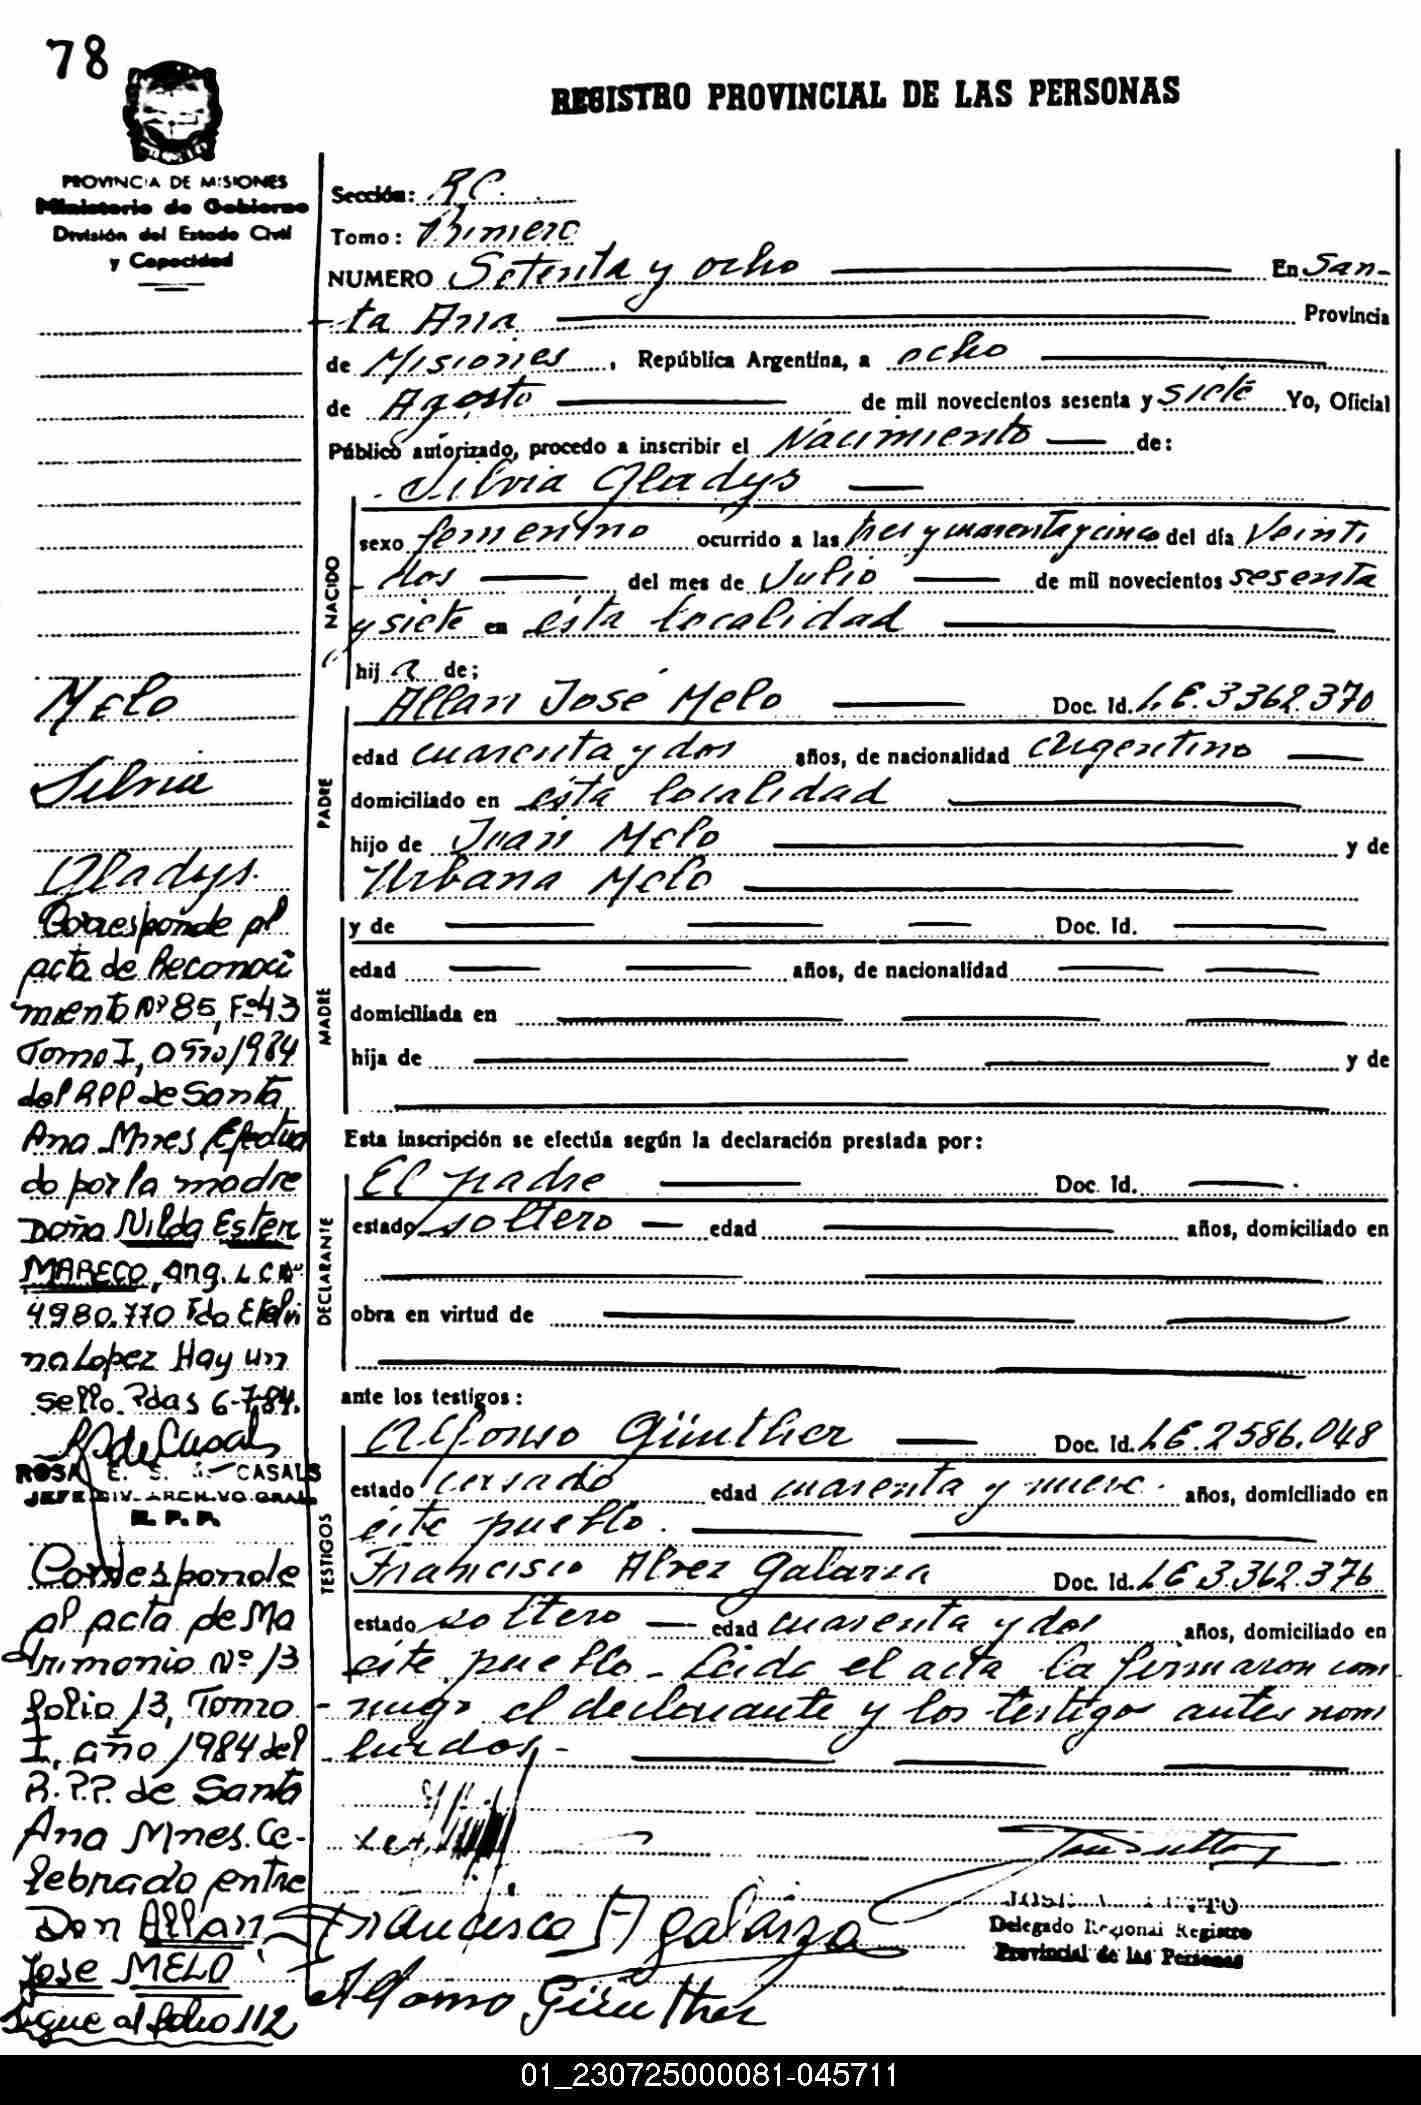 78
REGISTRO PROVINCIAL DE LAS PERSONAS
PROVINCIA DE MISIONES
Ministerio de Gobierno
División del Estado Civil
y Capacidad
Sección: RC.
Tomo: Primero
NUMERO Setenta y ocho En San-
ta Ana Provincia
de Misiones, República Argentina, a ocho
de Agosto de mil novecientos sesenta y siete Yo, Oficial
Público autorizado, procedo a inscribir el Nacimiento de:
Silvia Gladys
NACIDO
sexo femenino ocurrido a las tres y cuarenta y cinco del día Veinti
dos del mes de Julio de mil novecientos sesenta
y siete en ésta localidad
hija de;
PADRE
Allan José Melo Doc. Id. L.E. 3362.370
edad cuarenta y dos años, de nacionalidad Argentino
domiciliado en ésta localidad
hijo de Juan Melo y de
Urbana Melo
MADRE
y de Doc. Id.
edad años, de nacionalidad
domiciliada en
hija de y de
Esta inscripción se efectúa según la declaración prestada por:
DECLARANTE
El padre Doc. Id.
estado soltero edad años, domiciliado en
obra en virtud de
ante los testigos:
TESTIGOS
Alfonso Günther Doc. Id. L.E. 2586.048
estado casado edad cuarenta y nueve años, domiciliado en
éste pueblo.
Francisco Alvez Galarza Doc. Id. L.E. 3.362.376
estado soltero edad cuarenta y dos años, domiciliado en
éste pueblo - Leida el acta la firmaron con
migo el declarante y los testigos antes nom
brados.-
Francisco A galarza
Alfonso Günther
Delegado Regional Registro
Provincial de las Personas
Melo
Silvia
Gladys.
Corresponde al
acta de Reconoci
miento Nº 85, Fº 43
Tomo I, año 1984
del RPP de Santa
Ana Mnes Efectua
do por la madre
Doña Nilda Ester
MARECO, arg. L C Nº
4980.770 Fdo Etelvi
na Lopez Hay un
sello. Pdas 6-7-84.
R de Casals
ROSA E. S. de CASALS
JEFE DIV. ARCHIVO GRAL
R. P. P.
Corresponde
al acta de Ma
trimonio Nº 13
folio 13, Tomo
I, año 1984 del
R.P.P. de Santa
Ana Mnes. Ce-
lebrado entre
Don Allan
Jose MELO
Sigue al folio 112
01_230725000081-045711